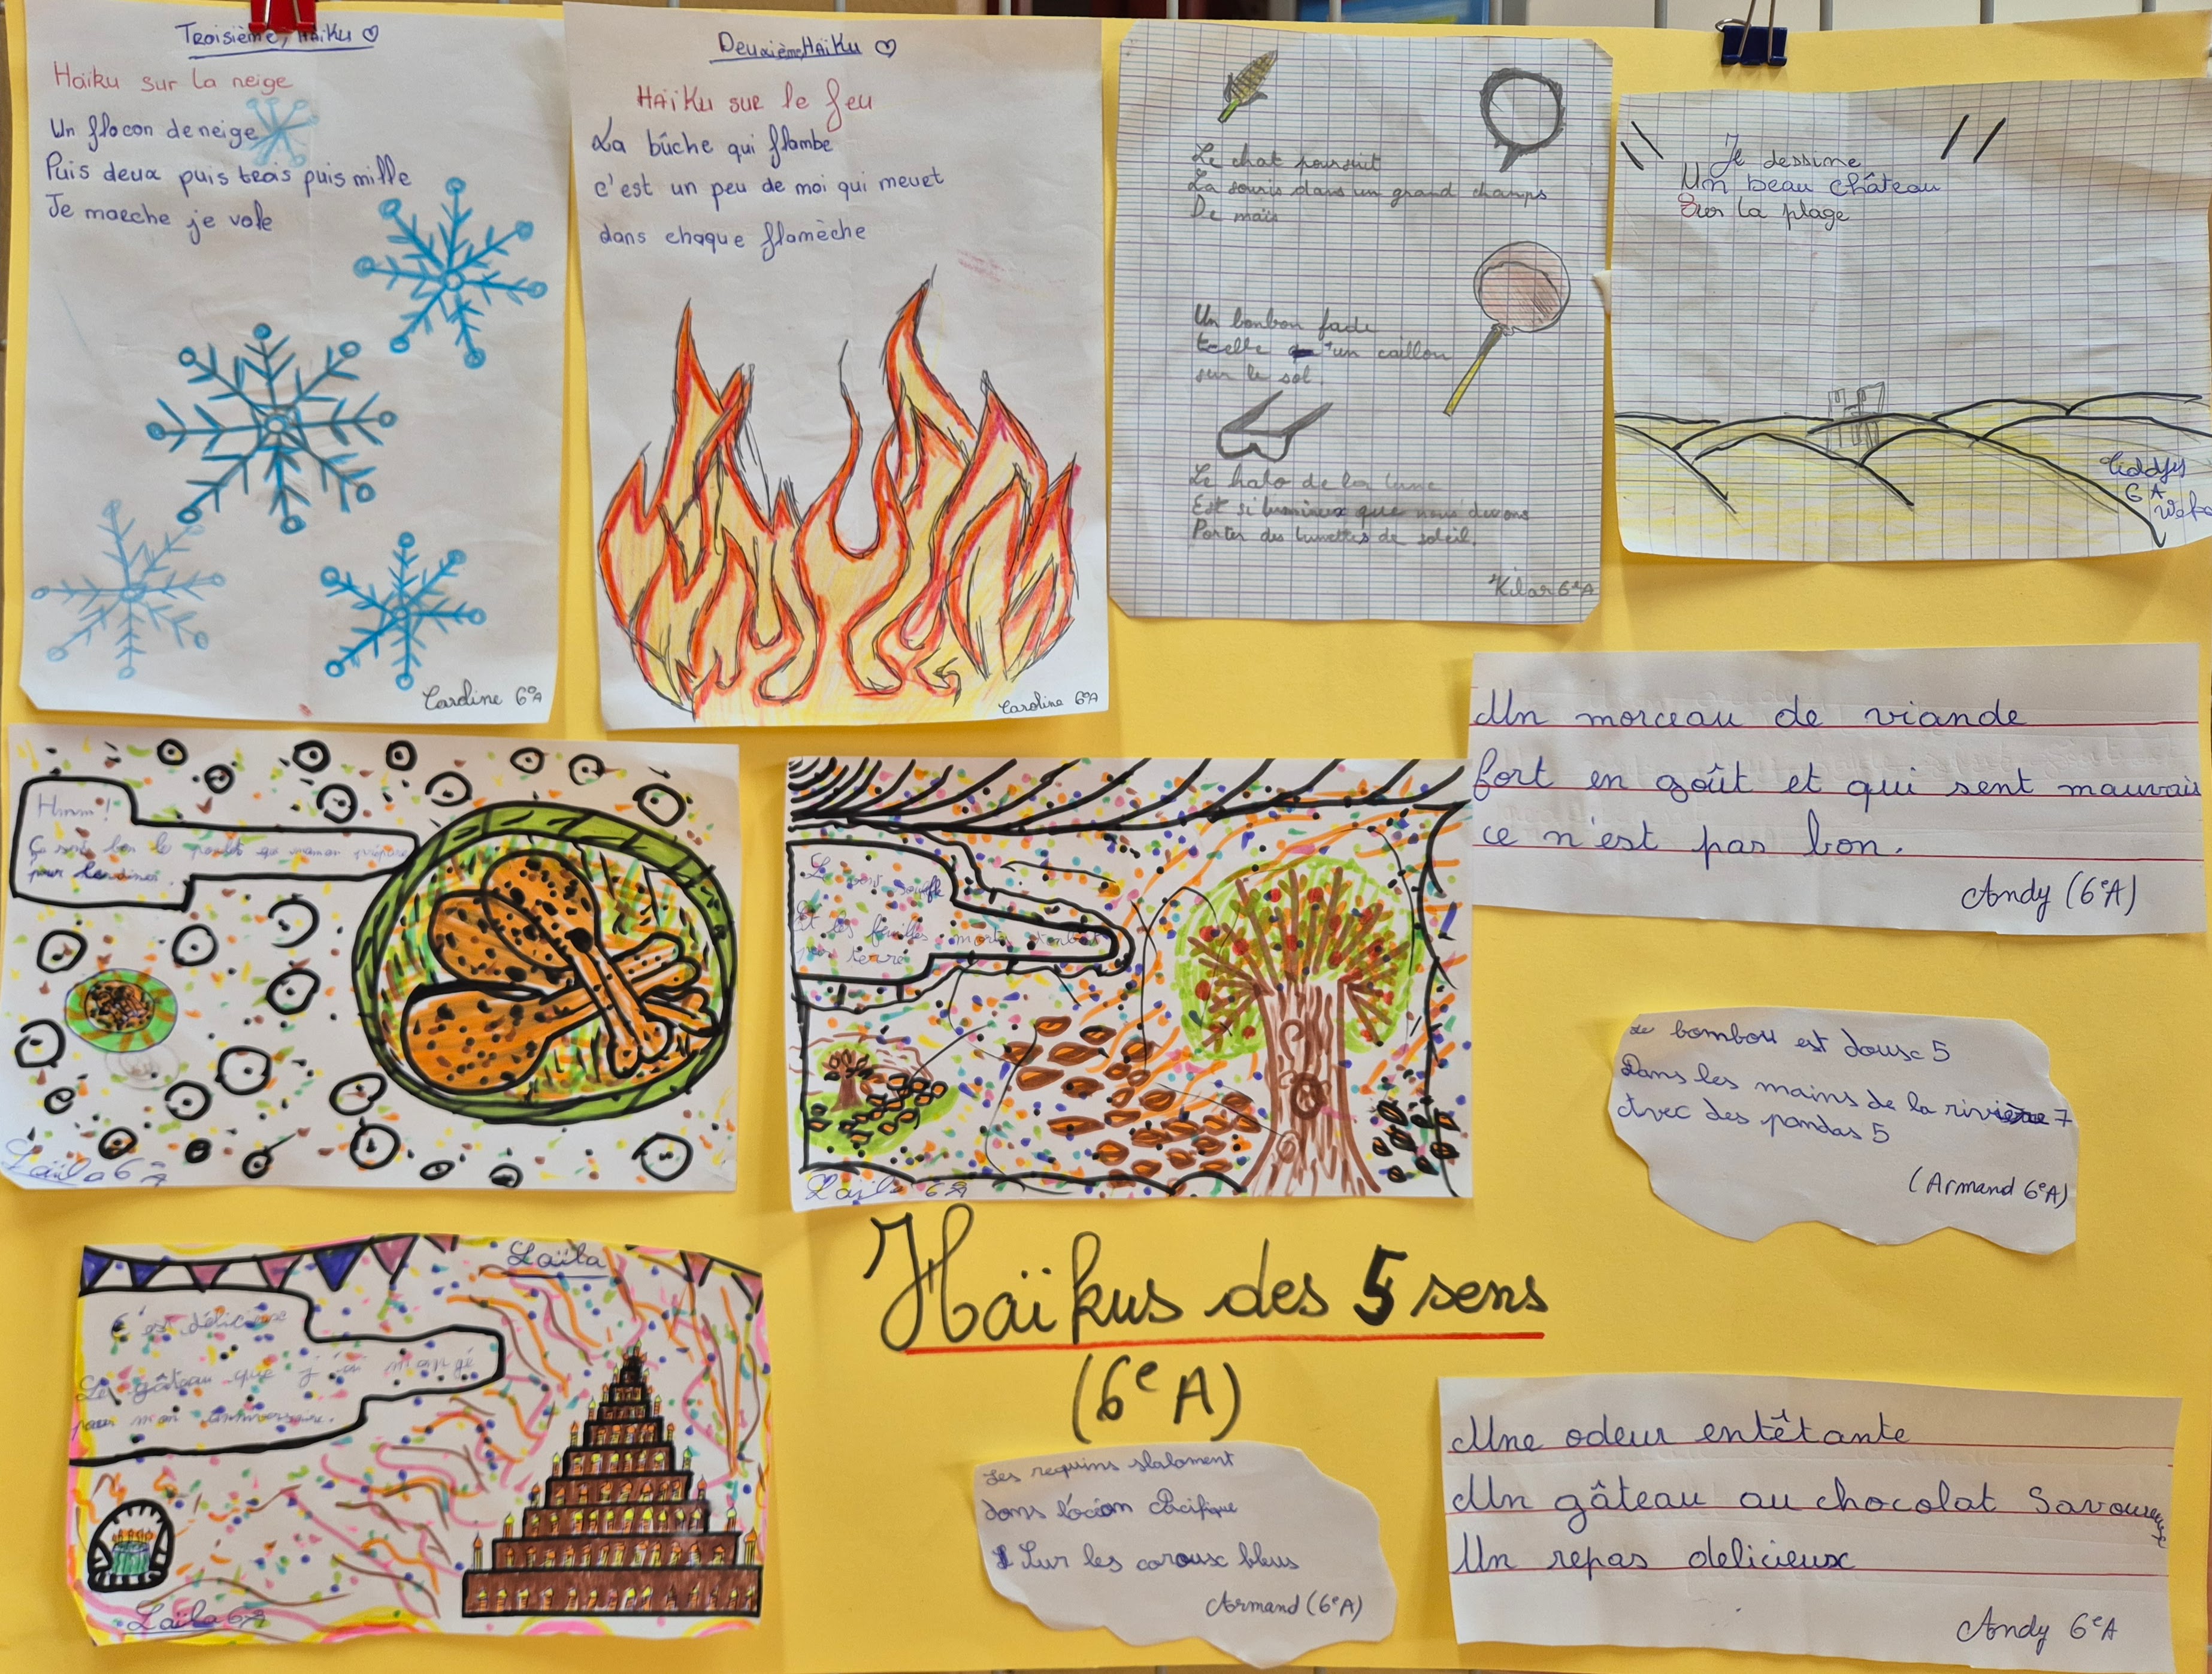 Troisième, Haïku ♡
Haïku sur la neige
Un flocon de neige
Puis deux puis trois puis mille
Je marche je vole
Caroline 6°A
Deuxième, Haïku ♡
Haïku sur le feu
La bûche qui flambe
c'est un peu de moi qui meurt
dans chaque flamèche
Caroline 6°A
Le chat poursuit
La souris dans un grand champs
De maïs
Un bonbon fade
un caillou
sur le sol.
Le halo de la lune
Est si lumineux que nous devons
Porter des lunettes de soleil.
6eA
Je dessine
Un beau château
Sur la plage
6A
Un morceau de viande
fort en goût et qui sent mauvais
ce n'est pas bon.
Andy (6eA)
Hmm!
Ça sent bon le poulet que maman prépare
pour
Laïla 6A
Le vent souffle
Et les feuilles mortes tombent
par terre
Laïla 6A
Le bombou est doux 5
Dans les mains de la rivière 7
Avec des pandas 5
(Armand 6eA)
Laïla
C'est délicieux
Le gâteau que j'ai mangé
pour mon anniversaire.
Laïla 6A
Haïkus des 5 sens
(6e A)
Les requins slaloment
dans l'océan Pacifique
Sur les coraux bleus
Armand (6eA)
Une odeur entêtante
Un gâteau au chocolat savoureux
Un repas delicieux
Andy 6eA